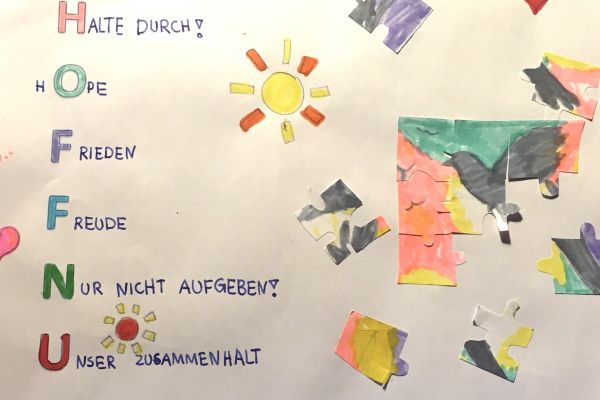 HALTE DURCH!
HOPE
FRIEDEN
FREUDE
NUR NICHT AUFGEBEN!
UNSER ZUSAMMENHALT